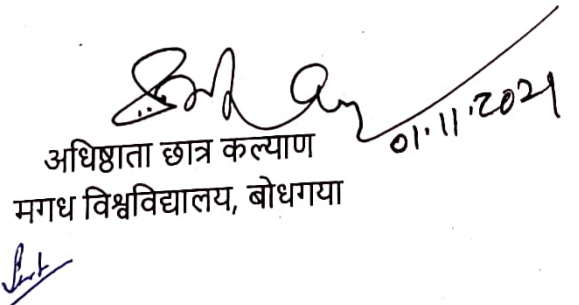 01.11.2021
अधिष्ठाता छात्र कल्याण
मगध विश्वविद्यालय, बोधगया